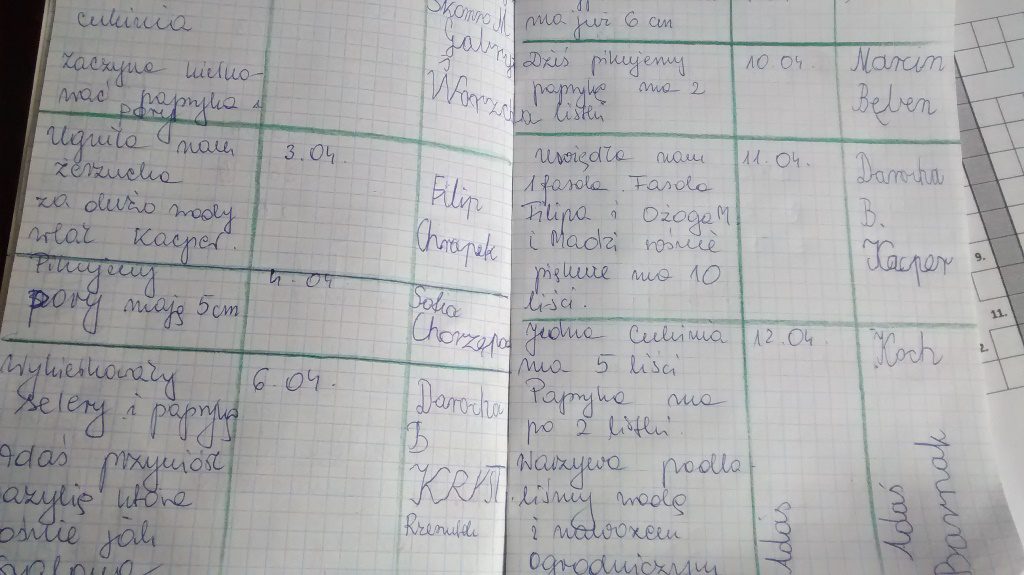 cukinia
Zaczyna kiełko-
wać papryka i
pory
Zgniła nam
żerzucha
za dużo wody
wlał Kacper.
3.04.
Filip
Chrapek
Pikujemy
pory mają 5cm
4.04
Chorzępa
Wykiełkowały
Selery i papryka
Adaś przyniósł
6.04.
Darocha
B
ma już 6 cm
Dziś pikujemy
paprykę ma 2
liścń
10.04.
Marcin
Bęben
Uwiędła nam
1 fasola. Fasola
Filipa i OżogaM
i Madzi rośnie
pięknie ma 10
liści.
11.04.
Darocha
B.
Kacper
Jedna Cukinia
ma 5 liści
Papryka ma
po 2 listki.
Warzywa podla-
liśmy wodą
i nawozem
ogrodniczym
12.04.
Koch
Adaś
Adaś
9.
11.
2